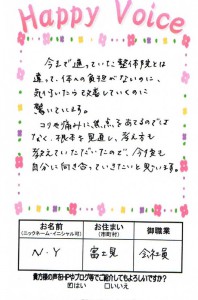 Happy Voice
今まで通っていた整体院とは
違って、体への負担がないのに、
気が付いたら改善していくのに
驚いています。
コリや痛みに、焦点をあてるのでは
なく、根本を見直し、考え方も
教えていただいたので、今後も
自分に向き合っていきたいと思います。
お名前 お住まい 御職業
(ニックネーム・イニシャル可) (市町村)
N・Y 富士見 会社員
貴方様の声をHPやブログ等でご紹介してもよろしいですか?
☑はい □いいえ